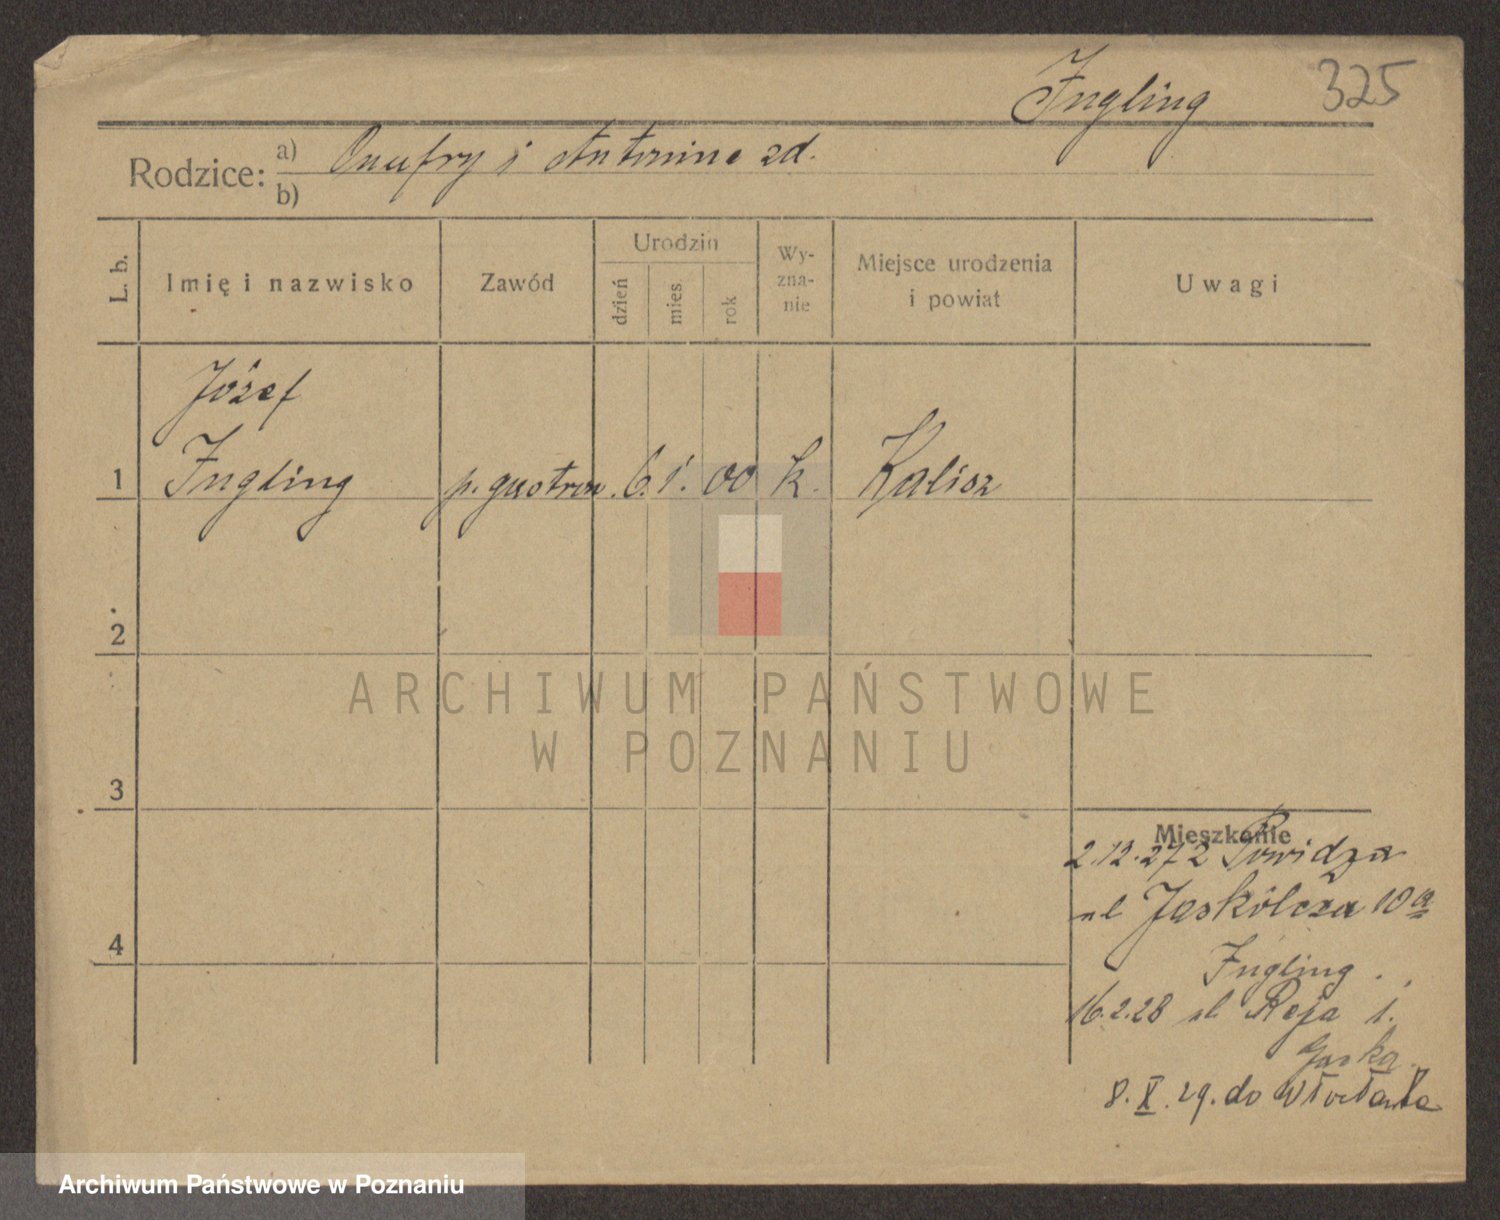 Ingling 325
Rodzice: a) Onufry i Antonina zd.
b)
L. b. Imię i nazwisko Zawód Urodzin dzień mies rok Wy-zna-nie Miejsce urodzenia i powiat Uwagi
Józef
1 Ingling p. gastron. 6. 1. 00 k. Kalisz
2
ARCHIWUM PAŃSTWOWE
W POZNANIU
3
Mieszkanie
2.12.27 z Powidza
ul Jaskólcza 10a
4
Ingling.
16.2.28 ul Reja 1.
8. X. 29. do Włocławka
Archiwum Państwowe w Poznaniu